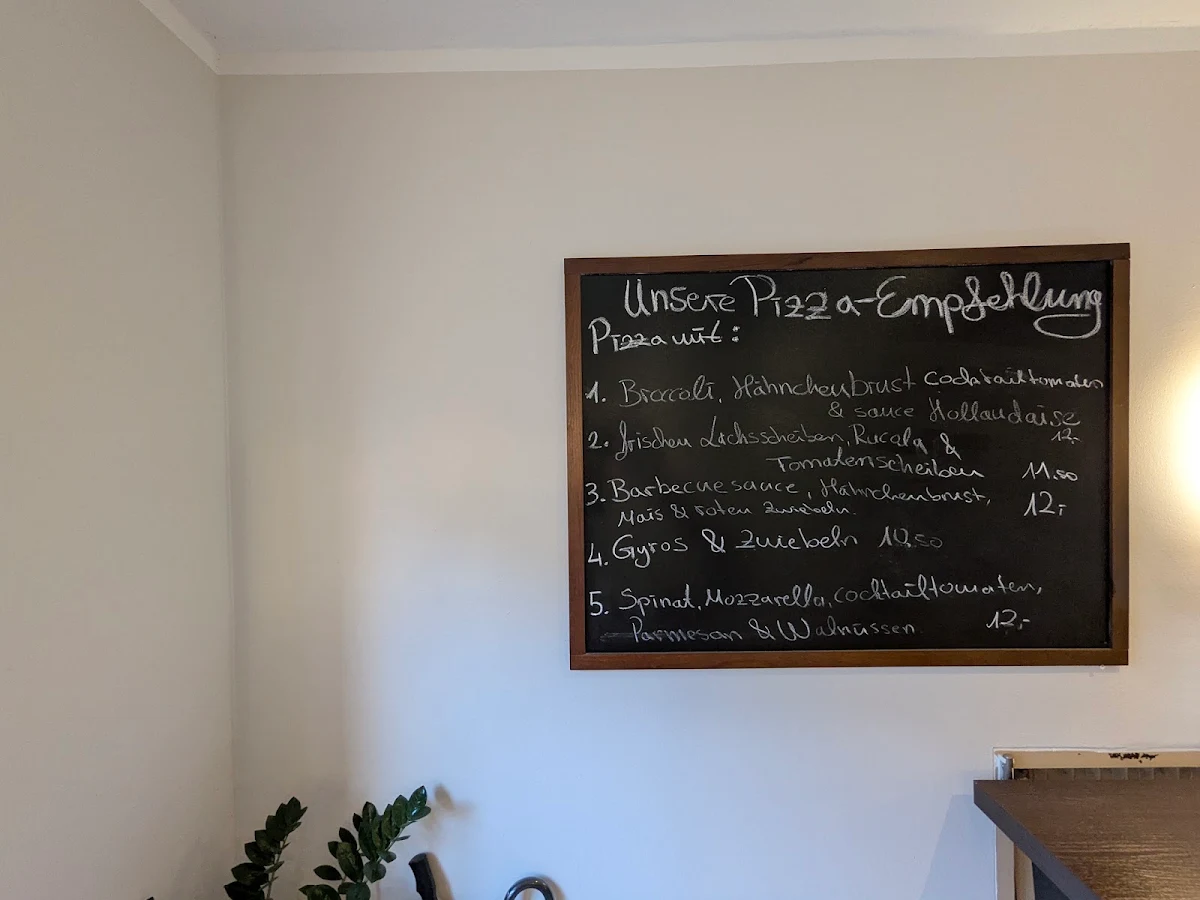 Unsere Pizza-Empfehlung
Pizza mit:
1. Broccoli, Hähnchenbrust cocktailtomaten
& sauce Hollandaise
12,-
2. frischen Lachsscheiben, Rucola &
Tomatenscheiben 11.50
3. Barbecuesauce, Hähnchenbrust,
Mais & roten Zwiebeln. 12,-
4. Gyros & Zwiebeln 10.50
5. Spinat, Mozzarella, cocktailtomaten,
Parmesan & Walnüssen 12,-